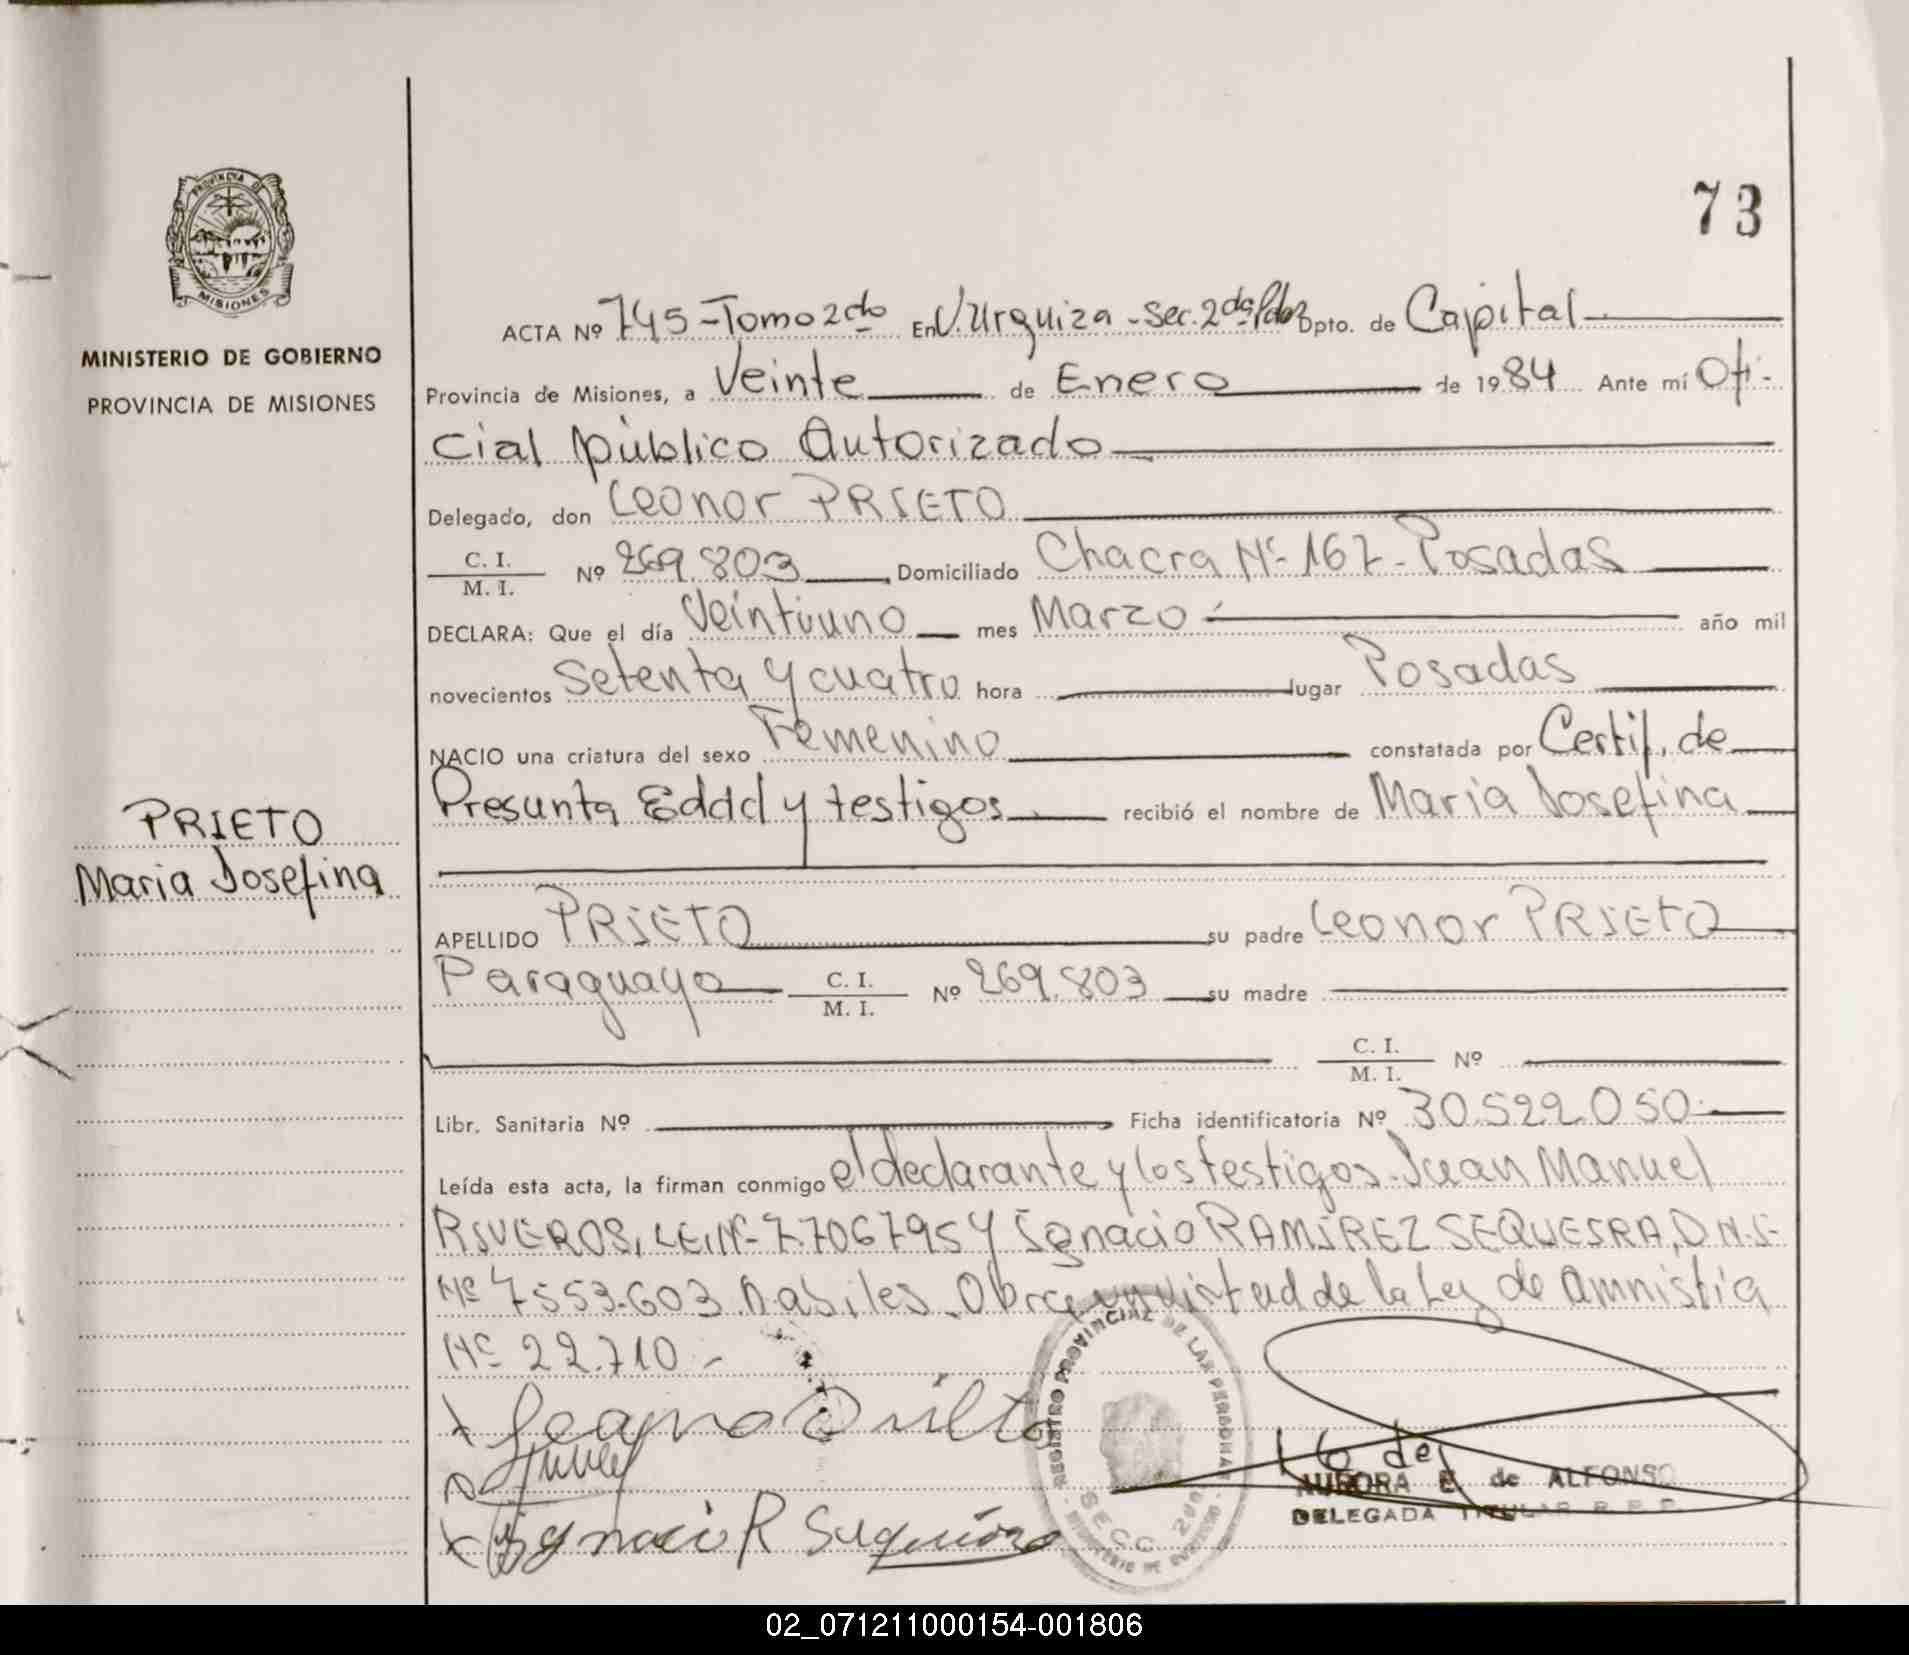 PROVINCIA DE
MISIONES
MINISTERIO DE GOBIERNO
PROVINCIA DE MISIONES
73
ACTA Nº 745-Tomo 2do En V. Urquiza - Sec. 2da Pdas Dpto. de Capital
Provincia de Misiones, a Veinte de Enero de 1984 Ante mí Ofi-
cial público Autorizado
Delegado, don Leonor PRIETO
C. I.
M. I. Nº 269.803 Domiciliado Chacra Nº 167-Posadas
DECLARA: Que el día Veintiuno mes Marzo año mil
novecientos Setenta y cuatro hora lugar Posadas
NACIO una criatura del sexo Femenino constatada por Certif. de
Presunta Edad y testigos recibió el nombre de Maria Josefina
PRIETO
Maria Josefina
APELLIDO PRIETO su padre Leonor PRIETO
Paraguayo C. I.
M. I. Nº 269.803 su madre
C. I.
M. I. Nº
Libr. Sanitaria Nº Ficha identificatoria Nº 30.522.050
Leída esta acta, la firman conmigo el declarante y los testigos. Juan Manuel
RIVEROS, L.E. Nº 7.706795 y Ignacio RAMIREZ SEQUEIRA, D.N.I
Nº 7553.603 habiles. Obra en virtud de la Ley de Amnistia
Nº 22.710.-
Ignacio R Sequeira
REGISTRO PROVINCIAL DE LAS PERSONAS
SECC. 2da
MINISTERIO DE GOBIERNO
AURORA E de ALFONSO
DELEGADA TITULAR R. P. P.
02_071211000154-001806